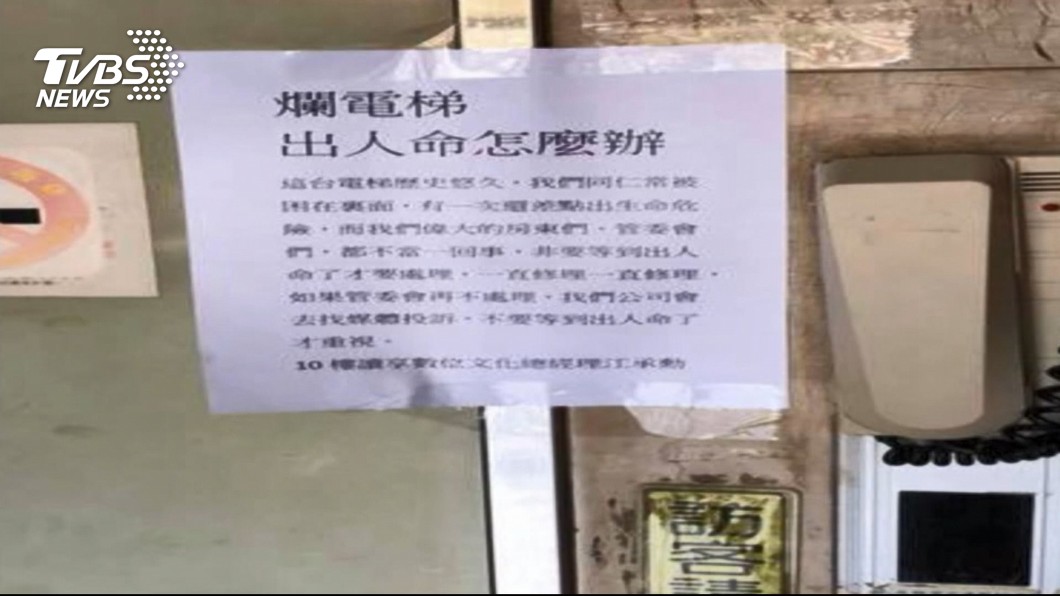 TVBS
NEWS
爛電梯
出人命怎麼辦
這台電梯歷史悠久，我們同仁常被
困在裏面，有一次還差點出生命危
險，而我們偉大的房東們，管委會
們，都不當一回事，非要等到出人
命了才要處理，一直修理一直修理，
如果管委會再不處理，我們公司會
去找媒體投訴，不要等到出人命了
才重視。
10 樓讀享數位文化總經理江承勳
訪客請